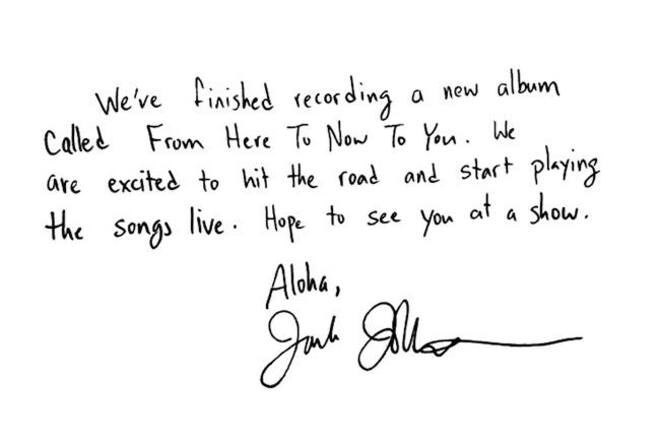 We've finished recording a new album
Called From Here To Now To You. We
are excited to hit the road and start playing
the songs live. Hope to see you at a show.
Aloha,
Jack Johnson